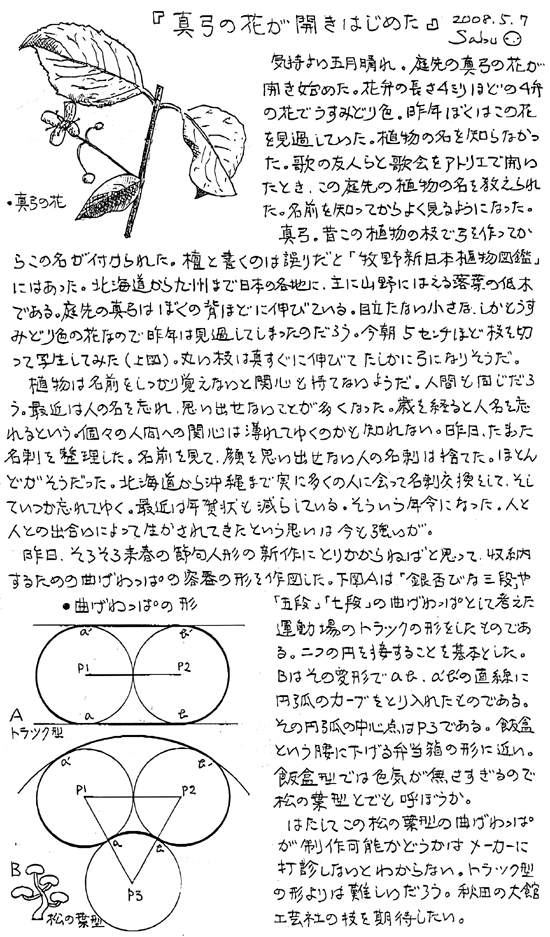 『真弓の花が開きはじめた』 2008.5.7
Sabu
気持よい五月晴れ。庭先の真弓の花が
開き始めた。花弁の長さ4ミリほどの4弁
の花でうすみどり色。昨年ぼくはこの花
を見過していた。植物の名を知らなかっ
た。歌の友人らと歌会をアトリエで開い
たとき、この庭先の植物の名を教えられ
た。名前を知ってからよく見るようになった。
・真弓の花
真弓。昔この植物の枝で弓を作ってか
らこの名が付けられた。檀と書くのは誤りだと「牧野新日本植物図鑑」
にはあった。北海道から九州まで日本の各地に、主に山野にはえる落葉の低木
である。庭先の真弓はぼくの背ほどに伸びている。目立たない小さな、しかもうす
みどり色の花なので昨年は見過してしまったのだろう。今朝5センチほど枝を切
って写生してみた(上図)。丸い枝は真すぐに伸びてたしかに弓になりそうだ。
植物は名前をしっかり覚えないと関心も持てないようだ。人間も同じだろ
う。最近は人の名を忘れ、思い出せないことが多くなった。歳を経ると人名を忘
れるという。個々の人間への関心は薄れてゆくのかも知れない。昨日、たまった
名刺を整理した。名前を見て、顔を思い出せない人の名刺は捨てた。ほとん
どがそうだった。北海道から沖縄まで実に多くの人に会って名刺交換をして、そし
ていつか忘れてゆく。最近は年賀状も減らしている。そういう年令になった。人と
人との出合いによって生かされてきたという思いは今も強いが。
昨日、そろそろ来春の節句人形の新作にとりかからねばと思って、収納
するための曲げわっぱの容器の形を作図した。下図Aは「銀杏びな三段」や
「五段」「七段」の曲げわっぱとして考えた
運動場のトラックの形をしたものであ
る。二つの円を接することを基本とした。
Bはその変形でab、a'b'の直線に
円弧のカーブをとり入れたものである。
その円弧の中心点はP3である。飯盒
という腰に下げる弁当箱の形に近い。
飯盒型では色気が無さすぎるので
松の葉型とでも呼ぼうか。
はたしてこの松の葉型の曲げわっぱ
が制作可能かどうかはメーカーに
打診しないとわからない。トラック型
の形よりは難しいだろう。秋田の大館
工芸社の技を期待したい。
●曲げわっぱの形
a' b'
P1 P2
a b
A
トラック型
a' b'
P1 P2
a b
P3
B
松の葉型